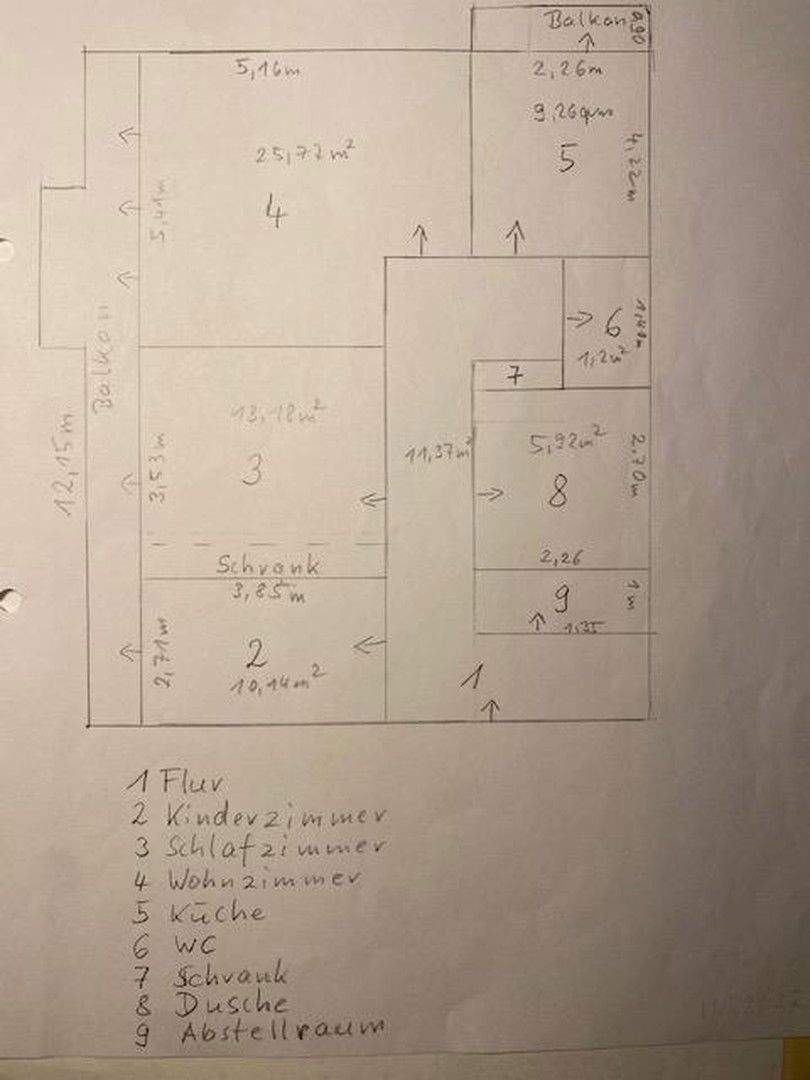 Balkon 0,90
5,16m
2,26m
9,26qm
4,22m
5
25,77m²
4
5,41m
6
1,2m²
7
Balkon
12,15m
13,18m²
3
3,53m
11,37m²
5,92m²
8
2,70m
Schrank
3,85m
2,26
9
1m
1,35
2,71m
2
10,14m²
1
1 Flur
2 Kinderzimmer
3 Schlafzimmer
4 Wohnzimmer
5 Küche
6 WC
7 Schrank
8 Dusche
9 Abstellraum